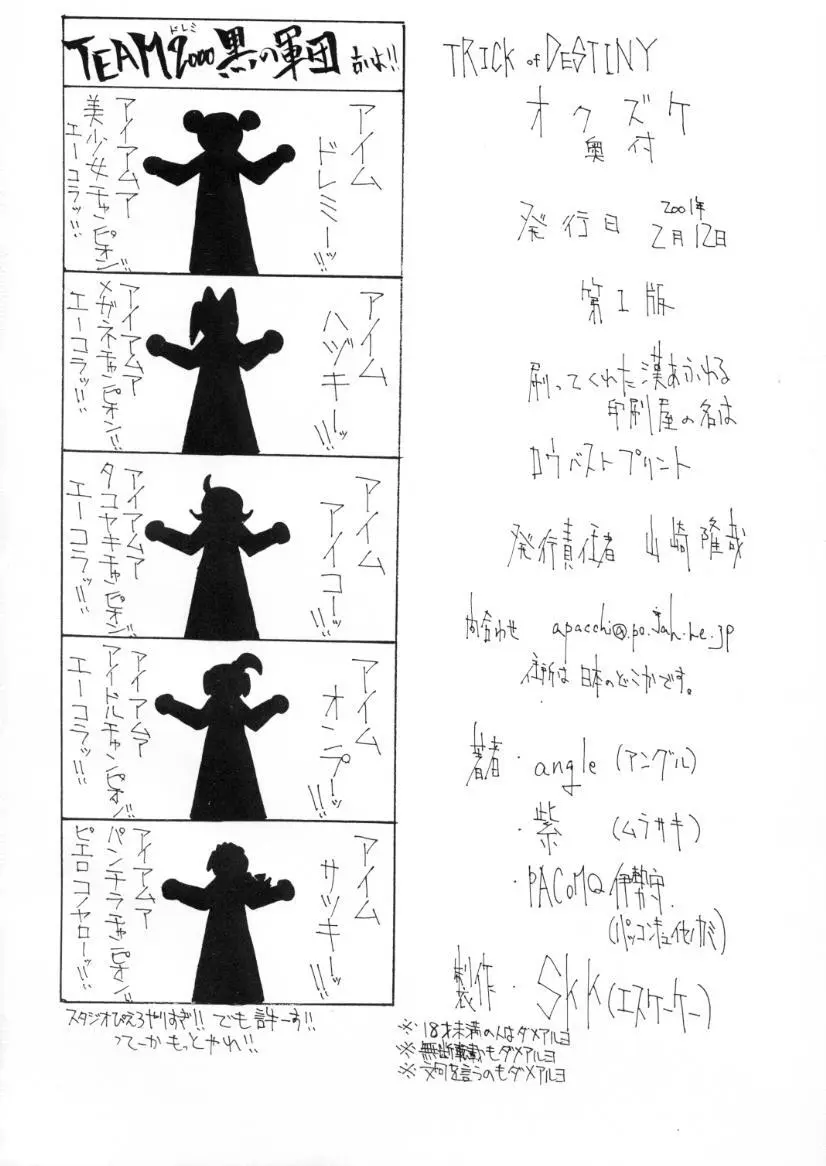 TEAMドレミ2000黒の軍団
アイム
ドレミーッ!!
アイアムア
美少女チャンピオン!!
エーコラッ!!!
アイム
ハヅキーッ!!!
アイアムア
メガネチャンピオン!!
エーコラッ!!!
アイム
アイコーッ!!!
アイアムア
タコヤキチャンピオン!!
エーコラッ!!!
アイム
オンプーッ!!!
アイアムア
アイドルチャンピオン!!
エーコラッ!!!
アイム
サツキーッ!!!
アイアムア
パンチラチャンピオン!!
ピエロコノヤローッ!!!
スタジオぴえろやりすぎ!!でも許ーす!!
つてーかもっとやれ!!
TRICK of DESTINY
オクズケ
奥付
発行日 2001年
2月12日
第1版
刷ってくれた漢あふれる
印刷屋の名は
ロウバストプリント
発行責任者 山崎隆哉
問合わせ apacchi@.po.jah.ne.jp
住所は日本のどこかです。
著者・angle(アングル)
・紫 (ムラサキ)
・PACoMQ伊勢守
(パッコンキュイセノカミ)
製作・SKK(エスケーケー)
※18才未満の人はダメアルヨ
※無断転載もダメアルヨ
※文句を言うのもダメアルヨ